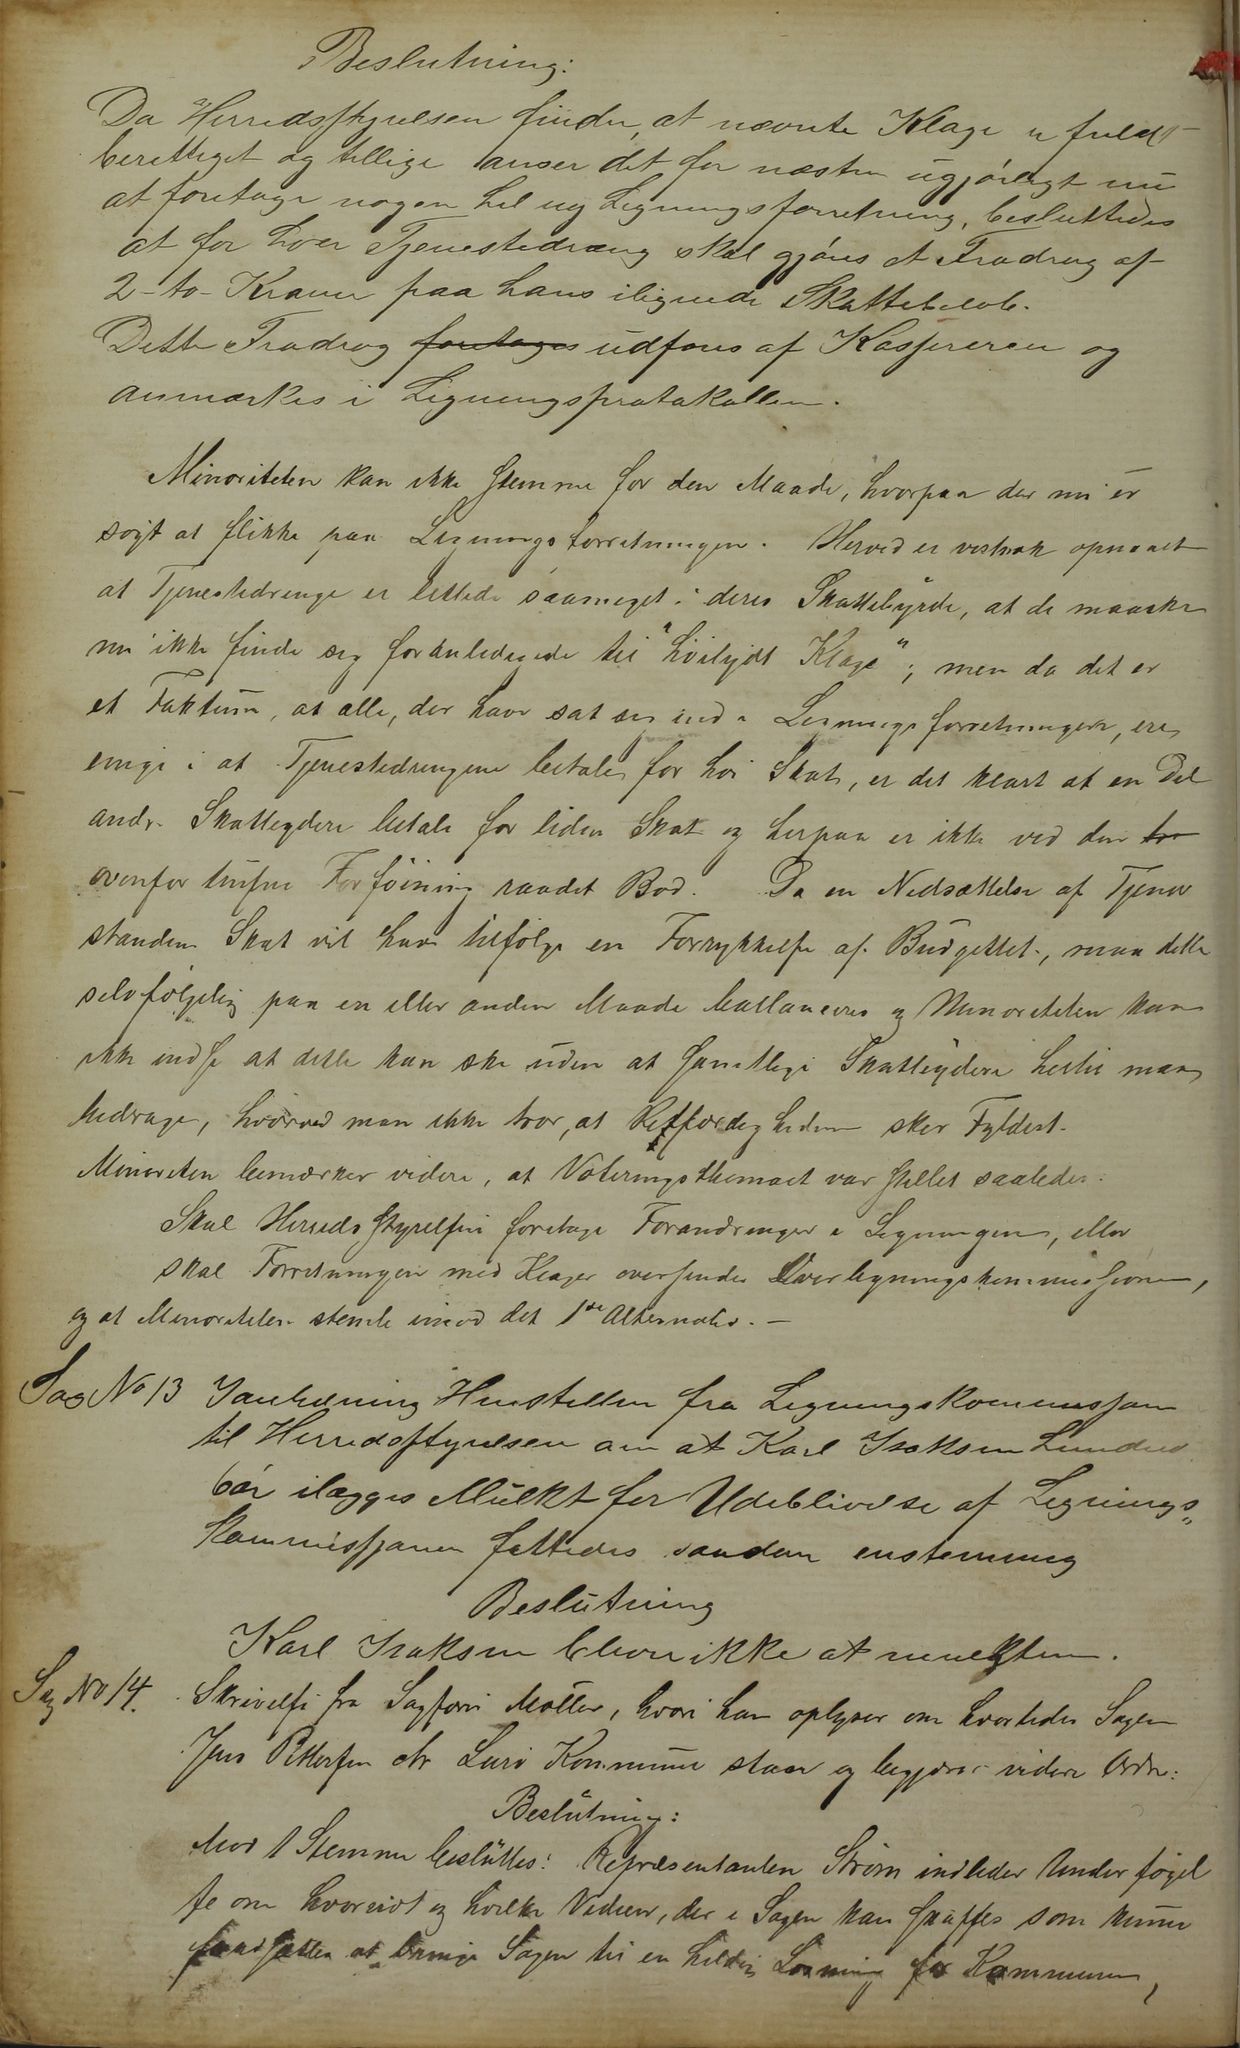 Beslutning:
Da Herredsstyrelsen finder, at nævnte Klage er fuldt
berettiget og tillige anser det for næsten ugjørligt nu
at foretage nogen hel ny Ligningsforretning, besluttedes
at for hver Tjenestedræng skal gjøres et Fradrag af
2 - to - Kroner paa hans ilignede Skattebeløb.
Dette Fradrag foretages udføres af Kassereren og
anmærkes i Ligningsprotokollen.
Minoriteten kan ikke stemme for den Maade, hvorpaa der nu er
søgt at flikke paa Ligningsforretningen. Herved er vistnok opnaaet
at Tjenestedrenge er lettede saameget i deres Skattebyrde, at de maaske
nu ikke finde sig foranledigede til "høilydt Klage"; men da det er
et Faktum, at alle, der have sat sig ind i Ligningsforretningen, ere
enige i at Tjenestedrengene betale for høi Skat, er det klart at en Del
andre Skatteydere betale for liden Skat og herpaa er ikke ved den
ovenfor trufne Forføining raadet Bod. Da en Nedsættelse af Tjener
standens Skat vil have tilfølge en Forrykkelse af Budgettet, maa dette
selvfølgelig paa en eller anden Maade ballanceres og Minoriteten kan
ikke indse at dette kan ske uden at samtlige Skatteydere hertil maa
bidrage, hvorved man ikke tror, at Retfærdigheden sker Fyldest.
Minoriten bemærker videre, at Voteringsthemaet var stillet saaledes:
Skal Herredsstyrelsen foretage Forandringer i Ligningen, eller
skal Forretningen med Klager oversendes Overligningskommissionen,
og at Minoriteten stemte imod det 1ste Alternativ. —
Sag No 13 I anledning Henstillen fra Ligningskommissjonen
til Herredsstyrelsen om at Karl Isaksen
bør ilægges Mulkt for Udeblivelse af Lignings„
kommissjonen fattedes saadan enstemmig
Beslutning
Karl Isaksen bliver ikke at mulktere.
Sag No 14. Skrivelse fra Sagfører Møller, hvori han oplyser om hvorledes Sagen
Jens Pettersen ctr Lurø Kommune staar og begjærer videre Ordre:
Beslutning:
Mod 1 Stemme besluttes: Repræsentanten Strøm indleder Undersøgel
se om hvorvidt og hvilke Vidner, der i Sagen kan skaffes som kunne
at bringe Sagen til en heldig Løsning for Kommunen,